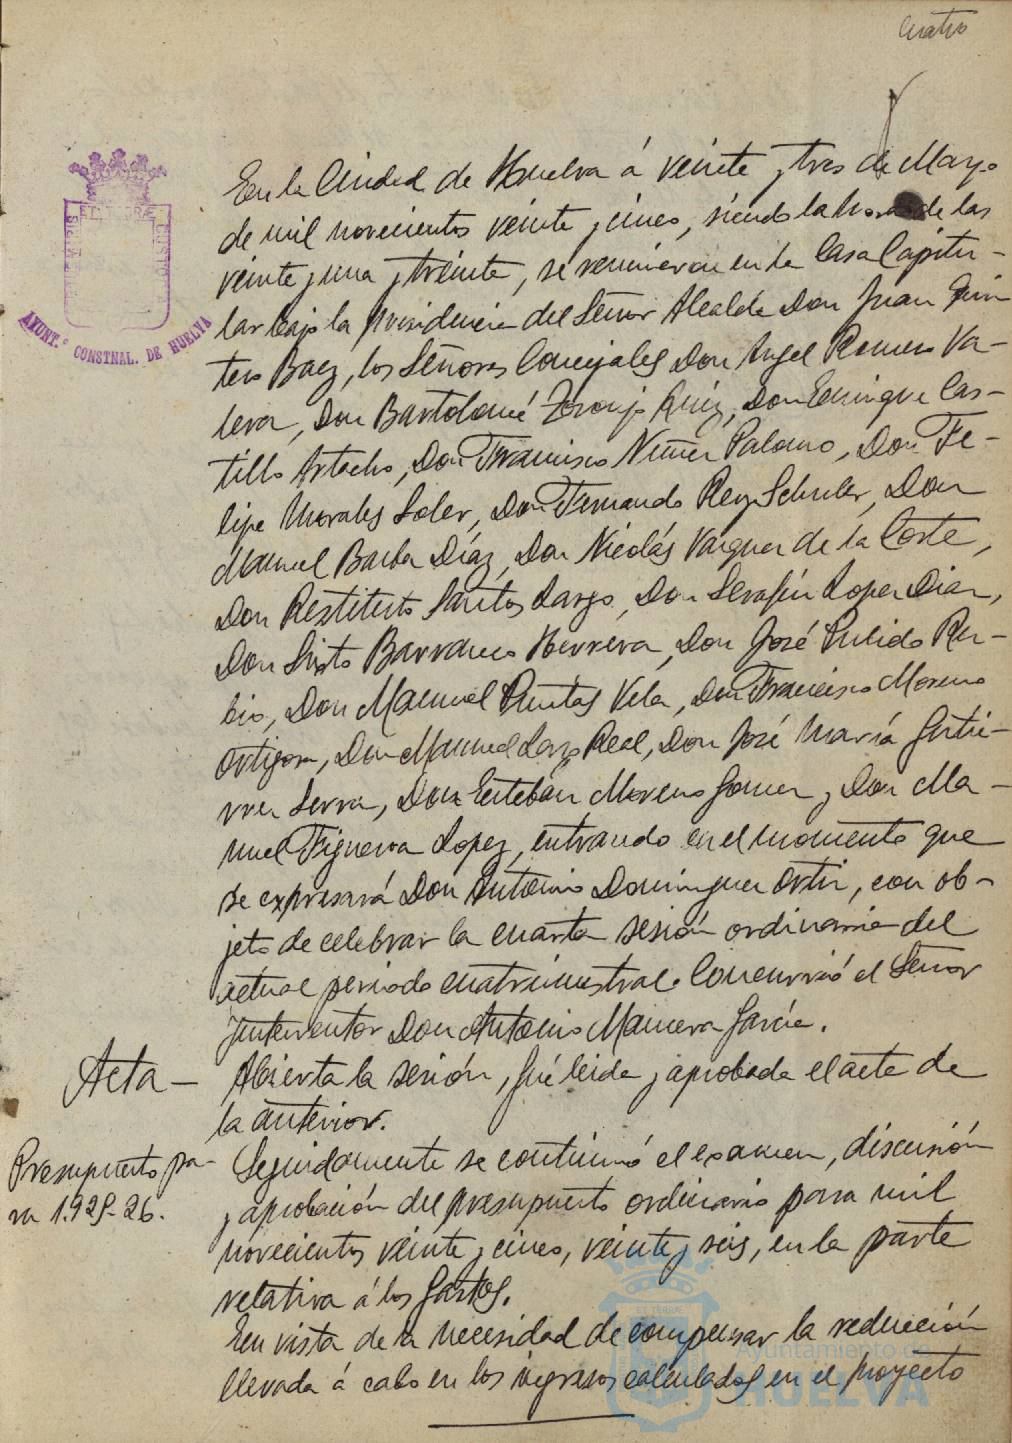 Cuatro
En la Ciudad de Huelva á veinte y tres de Marzo
de mil novecientos veinte y cinco, siendo la hora de las
veinte y una y treinta, se reunieron en la Casa Capitu-
lar bajo la presidencia del Señor Alcalde Don Juan Quin
tero Baez, los Señores Concejales Don Angel Romero Va-
lera, Don Bartolomé Ruiz, Don Enrique Cas-
tillo Artacho, Don Francisco Nuñez Palomo, Don Fe-
lipe Morales Soler, Don Fernando Rey Schuler, Don
Manuel Barba Díaz, Don Nicolás Vazquez de la Corte,
Don Restituto Santos Largo, Don Serafín Lopez Diaz,
Don Sixto Barranco Herrera, Don José Pulido Ru-
bio, Don Manuel Puntas Vela, Don Francisco Moreno
Ortigosa, Don Manuel Lazo Real, Don José María Gutié-
rrez Serra, Don Esteban Moreno Gomez y Don Ma-
nuel Figueroa Lopez, entrando en el momento que
se expresará Don Antonio Dominguez Ortiz, con ob-
jeto de celebrar la cuarta sesión ordinaria del
actual periodo cuatrimestral. Concurrió el Señor
Interventor Don Antonio Mancera García.
Acta - Abierta la sesión, fué leida y aprobada el acta de
la anterior.
Presupuesto pa-
ra 1.925-26.
Seguidamente se continuó el examen, discusión
y aprobación del presupuesto ordinario para mil
novecientos veinte y cinco, veinte y seis, en la parte
relativa á los Gastos.
En vista de la necesidad de compensar la reducción
llevada á cabo en los ingresos calculados en el proyecto
AYUNT.º CONSTNAL. DE HUELVA
Ayuntamiento de
HUELVA